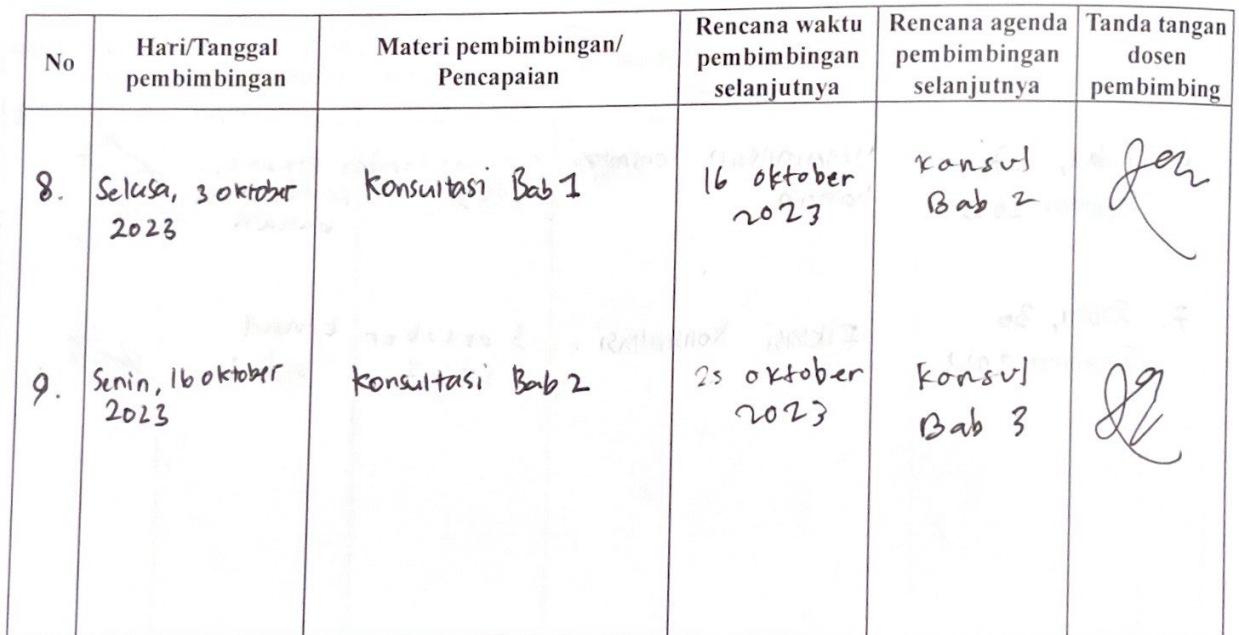 No
Hari/Tanggal
pembimbingan
Materi pembimbingan/
Pencapaian
Rencana waktu
pembimbingan
selanjutnya
Rencana agenda
pembimbingan
selanjutnya
Tanda tangan
dosen
pembimbing
8.
Selasa, 3 oktober
2023
Konsultasi Bab 1
16 oktober
2023
Konsul
Bab 2
9.
Senin, 16 oktober
2023
Konsultasi Bab 2
25 oktober
2023
Konsul
Bab 3